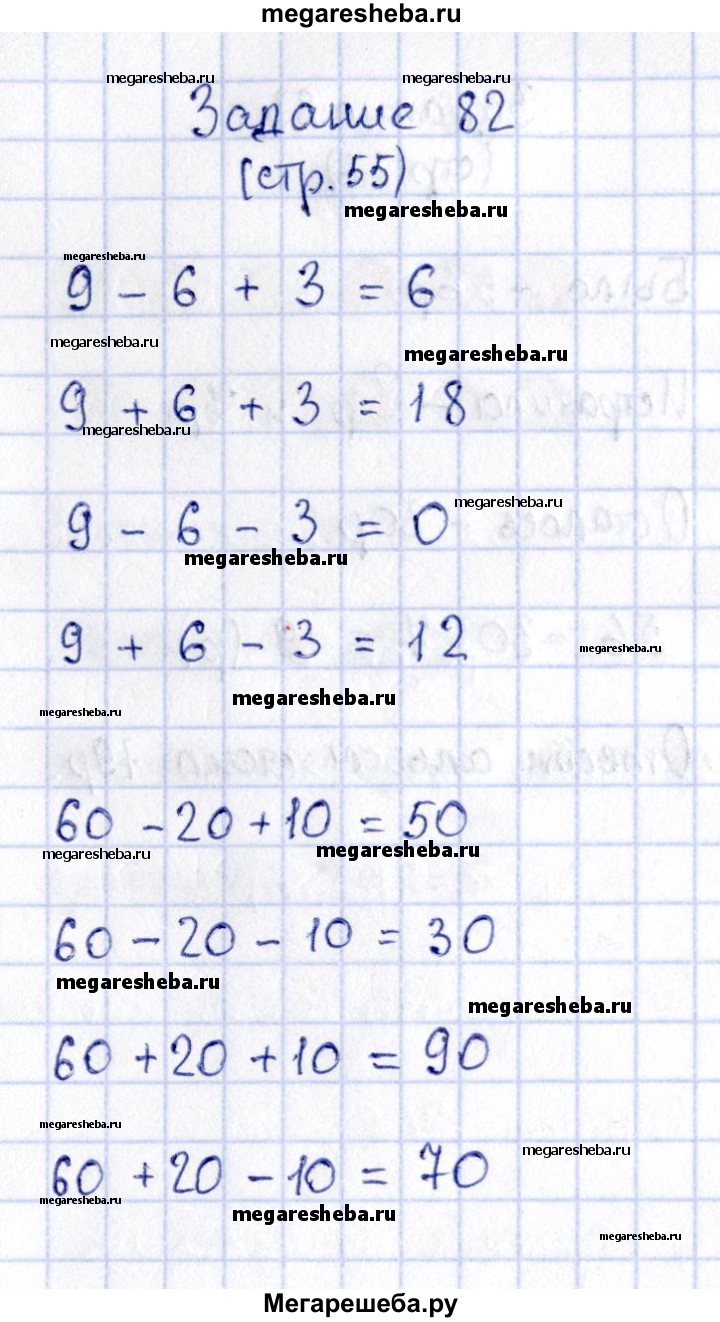 megaresheba.ru
megaresheba.ru megaresheba.ru
Задание 82
(стр. 55)
megaresheba.ru
megaresheba.ru
9 - 6 + 3 = 6
megaresheba.ru
megaresheba.ru
9 + 6 + 3 = 18
megaresheba.ru
megaresheba.ru
9 - 6 - 3 = 0
megaresheba.ru
9 + 6 - 3 = 12
megaresheba.ru
megaresheba.ru
megaresheba.ru
60 - 20 + 10 = 50
megaresheba.ru
megaresheba.ru
60 - 20 - 10 = 30
megaresheba.ru
megaresheba.ru
60 + 20 + 10 = 90
megaresheba.ru
megaresheba.ru
60 + 20 - 10 = 70
megaresheba.ru
megaresheba.ru
megaresheba.ru
Мегарешеба.ру